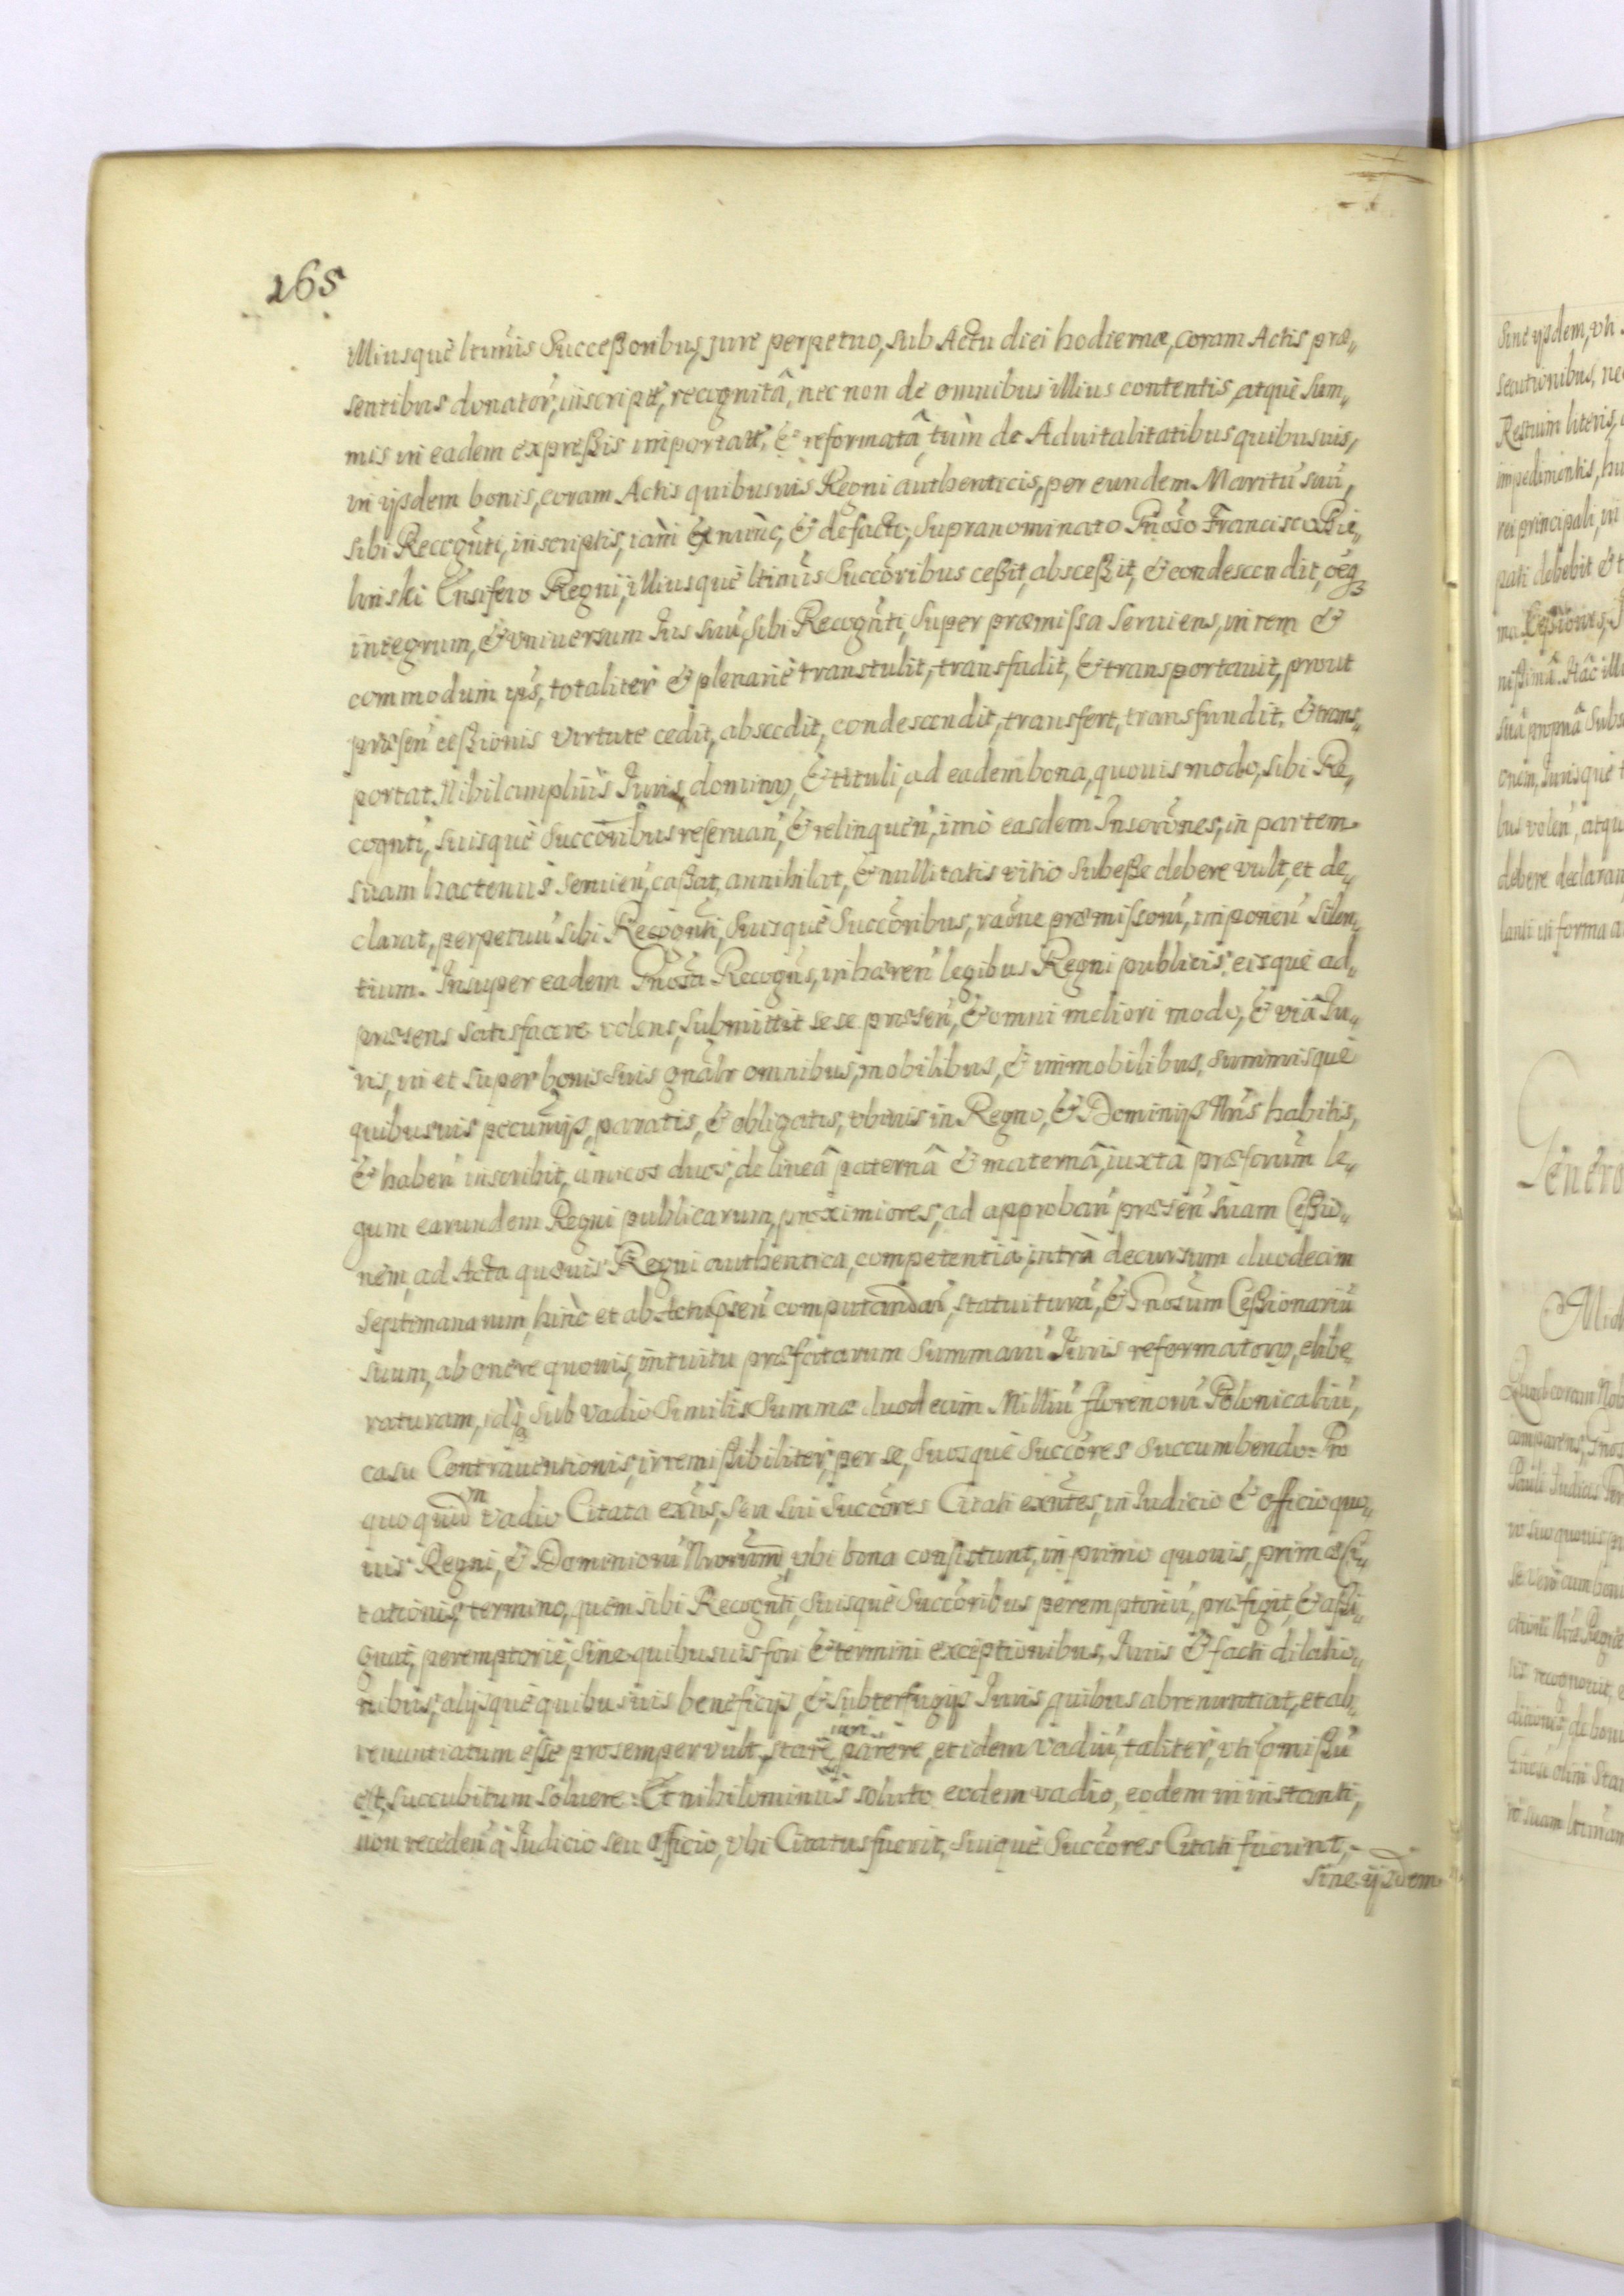 265
illiusquè ltimis Successoribus, jure perpetuo, sub Actu diei hodiernæ, coram Actis præ„
sentibus donatör, inscript, recognitâ, nec non de omnibus illius contentis, atquè Sum„
mis in eadem expressis importatt, & reformatâ, tùm de Aduitalitatibus quibusuis,
in ijsdem bonis, coram Actis quibusuis Regni authenticis, per eundem Maritũ suũ,
sibi Recognti, inscriptis, iàm ex nùnc, & de facto, Supranominato Gnöso Francisco Bie„
linski Ensifero Regni, illiusquè ltimis Succöribus cessit, abscessit, & condescendit, oëq
integrum, & vniuersum Jus suũ, sibi Recognti, super præmissa seruiens, in rem &
commodum ips, totalitèr & plenariè transtulit, transfudit, & transportauit, prout
præsen cessionis virtute cedit, abscedit, condescendit, transfert, transfundit, & trans„
portat. Nihil ampliùs Juris, dominij, & tituli, ad eadem bona, quouis modo, sibi Re„
cognti, suisquè Succöribus reseruan, & relinquen, imò easdem Inscrönes, in partem
suam hactenùs seruien, cassat, annihilat, & nullitatis vitio subesse debere vult, et de„
clarat, perpetuũ sibi Recognti, suisquè Succöribus, raöne præmissorũ, imponen silen„
tium. Insuper eadem Gnösa Recogns, inhæren legibus Regni publicis, eisquè ad„
præsens satisfacere volens, submittit sese præsen, & omni meliori modo, & viâ Ju„
ris, in et super bonis suis gnälr omnibus, mobilibus, & immobilibus, summisquè
quibusuis pecunijs, paratis, & obligatis, vbiuis in Regno, & Dominijs Nris habitis,
& haben inscribit, amicos duos, de lineâ paternâ & maternâ, iuxtà præscrum le„
gum earundem Regni publicarum, proximiores, ad approban præsen suam Cessio„
nem, ad Acta quæuis Regni authentica, competentia, intrà decursum duodecim
septimanarum, hinc et ab Actu præsen computandaru, statuiturã, & Gnösum Cessionariũ
suum, ab onere quouis, intuitu præfatarum Summarũ Juris reformatorij, elibe„
raturam, idq sub vadio similis Summæ duodecim Milliũ florenorũ Polonicaliũ,
casu Contrauentionis, irremissibilitèr, per se, suosquè Succöres succumbendo. Pro
quo quidm vadio Citata exns, seu sui Succöres Citati exntes, in Judicio & officio quo„
uis Regni, & Dominiorũ Nrorum, vbi bona consistunt, in primo quouis, primæ Ci„
tationis, termino, quem sibi Recognti, suisquè Succöribus peremptoriũ, præfigit, & assi„
gnat, peremptoriè, sine quibusuis fori & termini exceptionibus, Juris & facti dilatio„
nibus, alijsquè quibusuis beneficijs, & subterfugijs Juris, quibus abrenuntiat, et ab„
renuntiatum esse pro semper vult, stare, iuri parere, et idem vadiũ, talitèr, vti præmissũ
est, succubitum soluere. Et nihilominùs soluto eodem vadio, eodem in instanti,
non receden à Judicio seu officio, vbi Citatus fuerit, suiquè Succöres Citati fuerint,
sine ijsdem